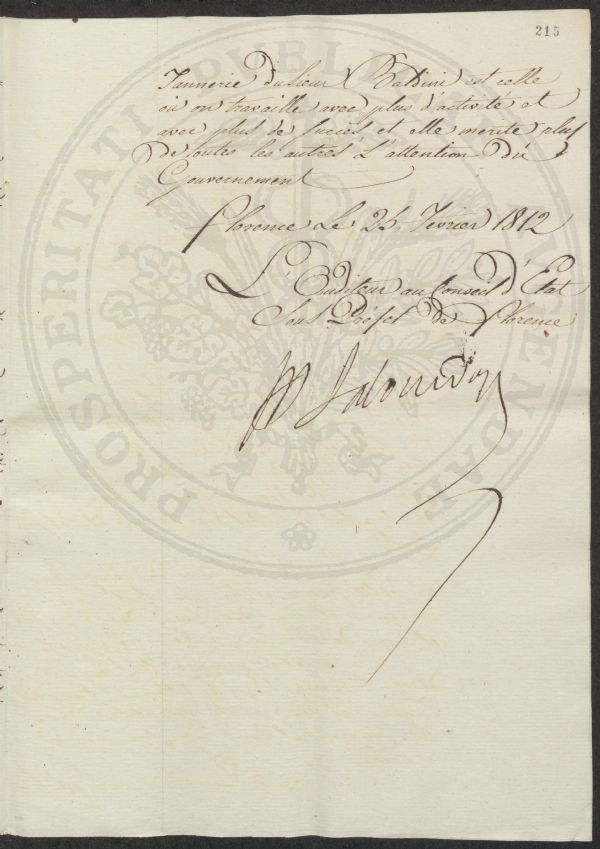 215
Tannerie du Sieur Baldini est celle
où on travaille avec plus d'activité et
avec plus de succès et elle merite plus
de toutes les autres L'attention du
Gouvernement
florence Le 25 Fevrier 1812
L'Auditeur au Conseil d'Etat
Sous Préfet de florence
PROSPERITATI PUBLICAE AUGENDAE